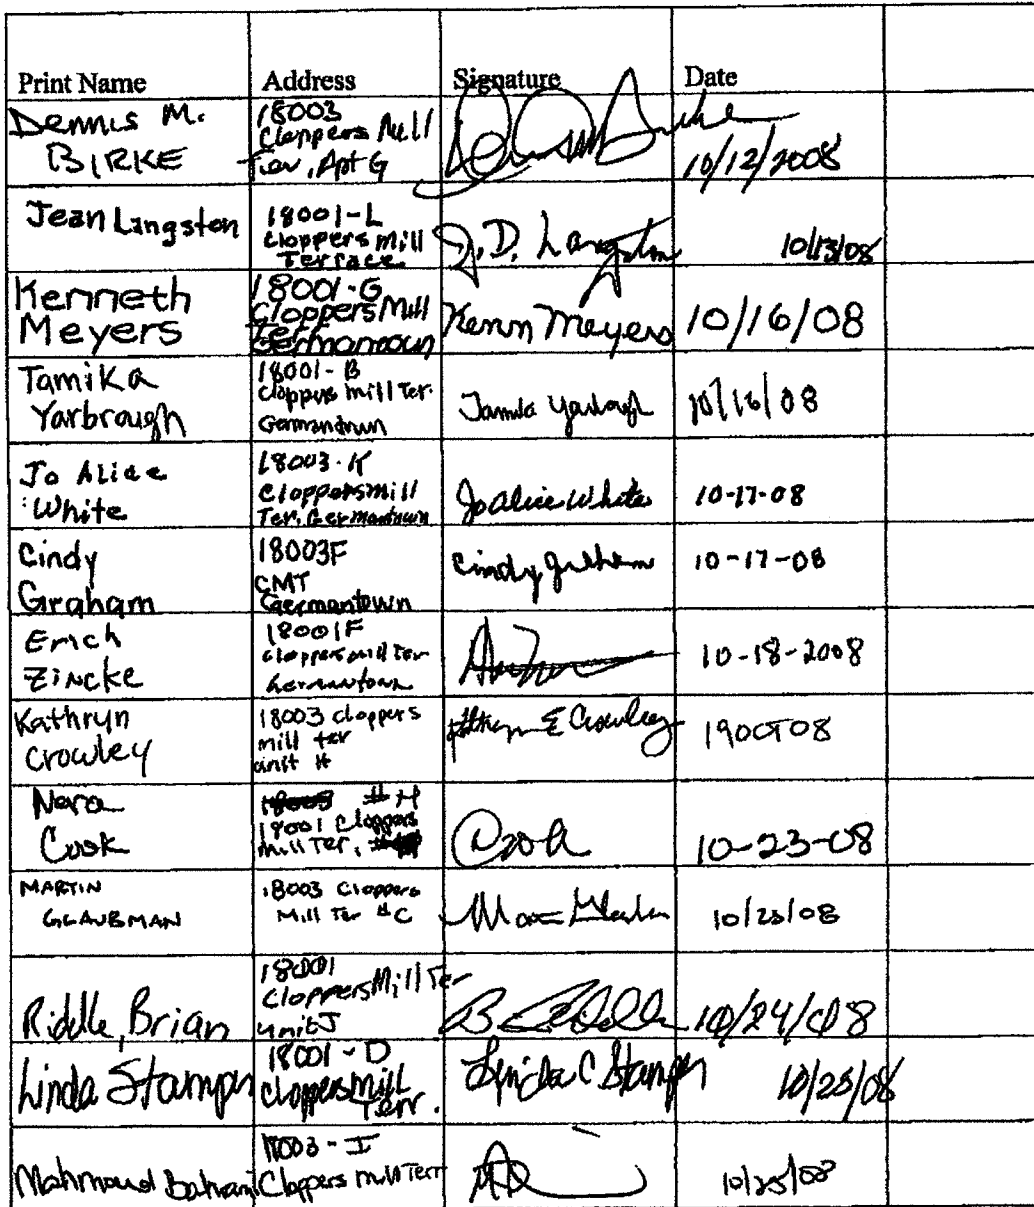 Print Name Address Signature Date
Dennis M.
BIRKE
18003
Cloppers Mill
Ter, Apt G
10/12/2008
Jean Langston
18001-L
Cloppers Mill
Terrace
J.D. Langston
10/13/08
Kenneth
Meyers
18001-G
Cloppers Mill
Terr
Germantown
Kenn Meyers
10/16/08
Tamika
Yarbrough
18001-B
Cloppers Mill Ter.
Germantown
Tamika Yarbrough
10/16/08
Jo Alice
White
18003-K
Cloppersmill
Ter, Germantown
Jo Alice White
10-17-08
Cindy
Graham
18003F
CMT
Germantown
Cindy Graham
10-17-08
Erich
Zincke
18001F
Cloppers mill Ter
Germantown
10-18-2008
Kathryn
Crowley
18003 cloppers
mill ter
unit H
Kathryn E Crowley
19OCT08
Nora
Cook
18003 # H
18001 Cloppers
Mill Ter,
Cook
10-23-08
MARTIN
GLAUBMAN
18003 Cloppers
Mill Ter #C
10/23/08
Riddle, Brian
18001
Cloppers Mill Ter
unit J
B Riddle
10/24/08
Linda Stamper
18001-D
Cloppers Mill
Terr.
Linda C Stamper
10/25/08
Mahmoud Bahrami
18003-I
Cloppers Mill Terr
10/25/08